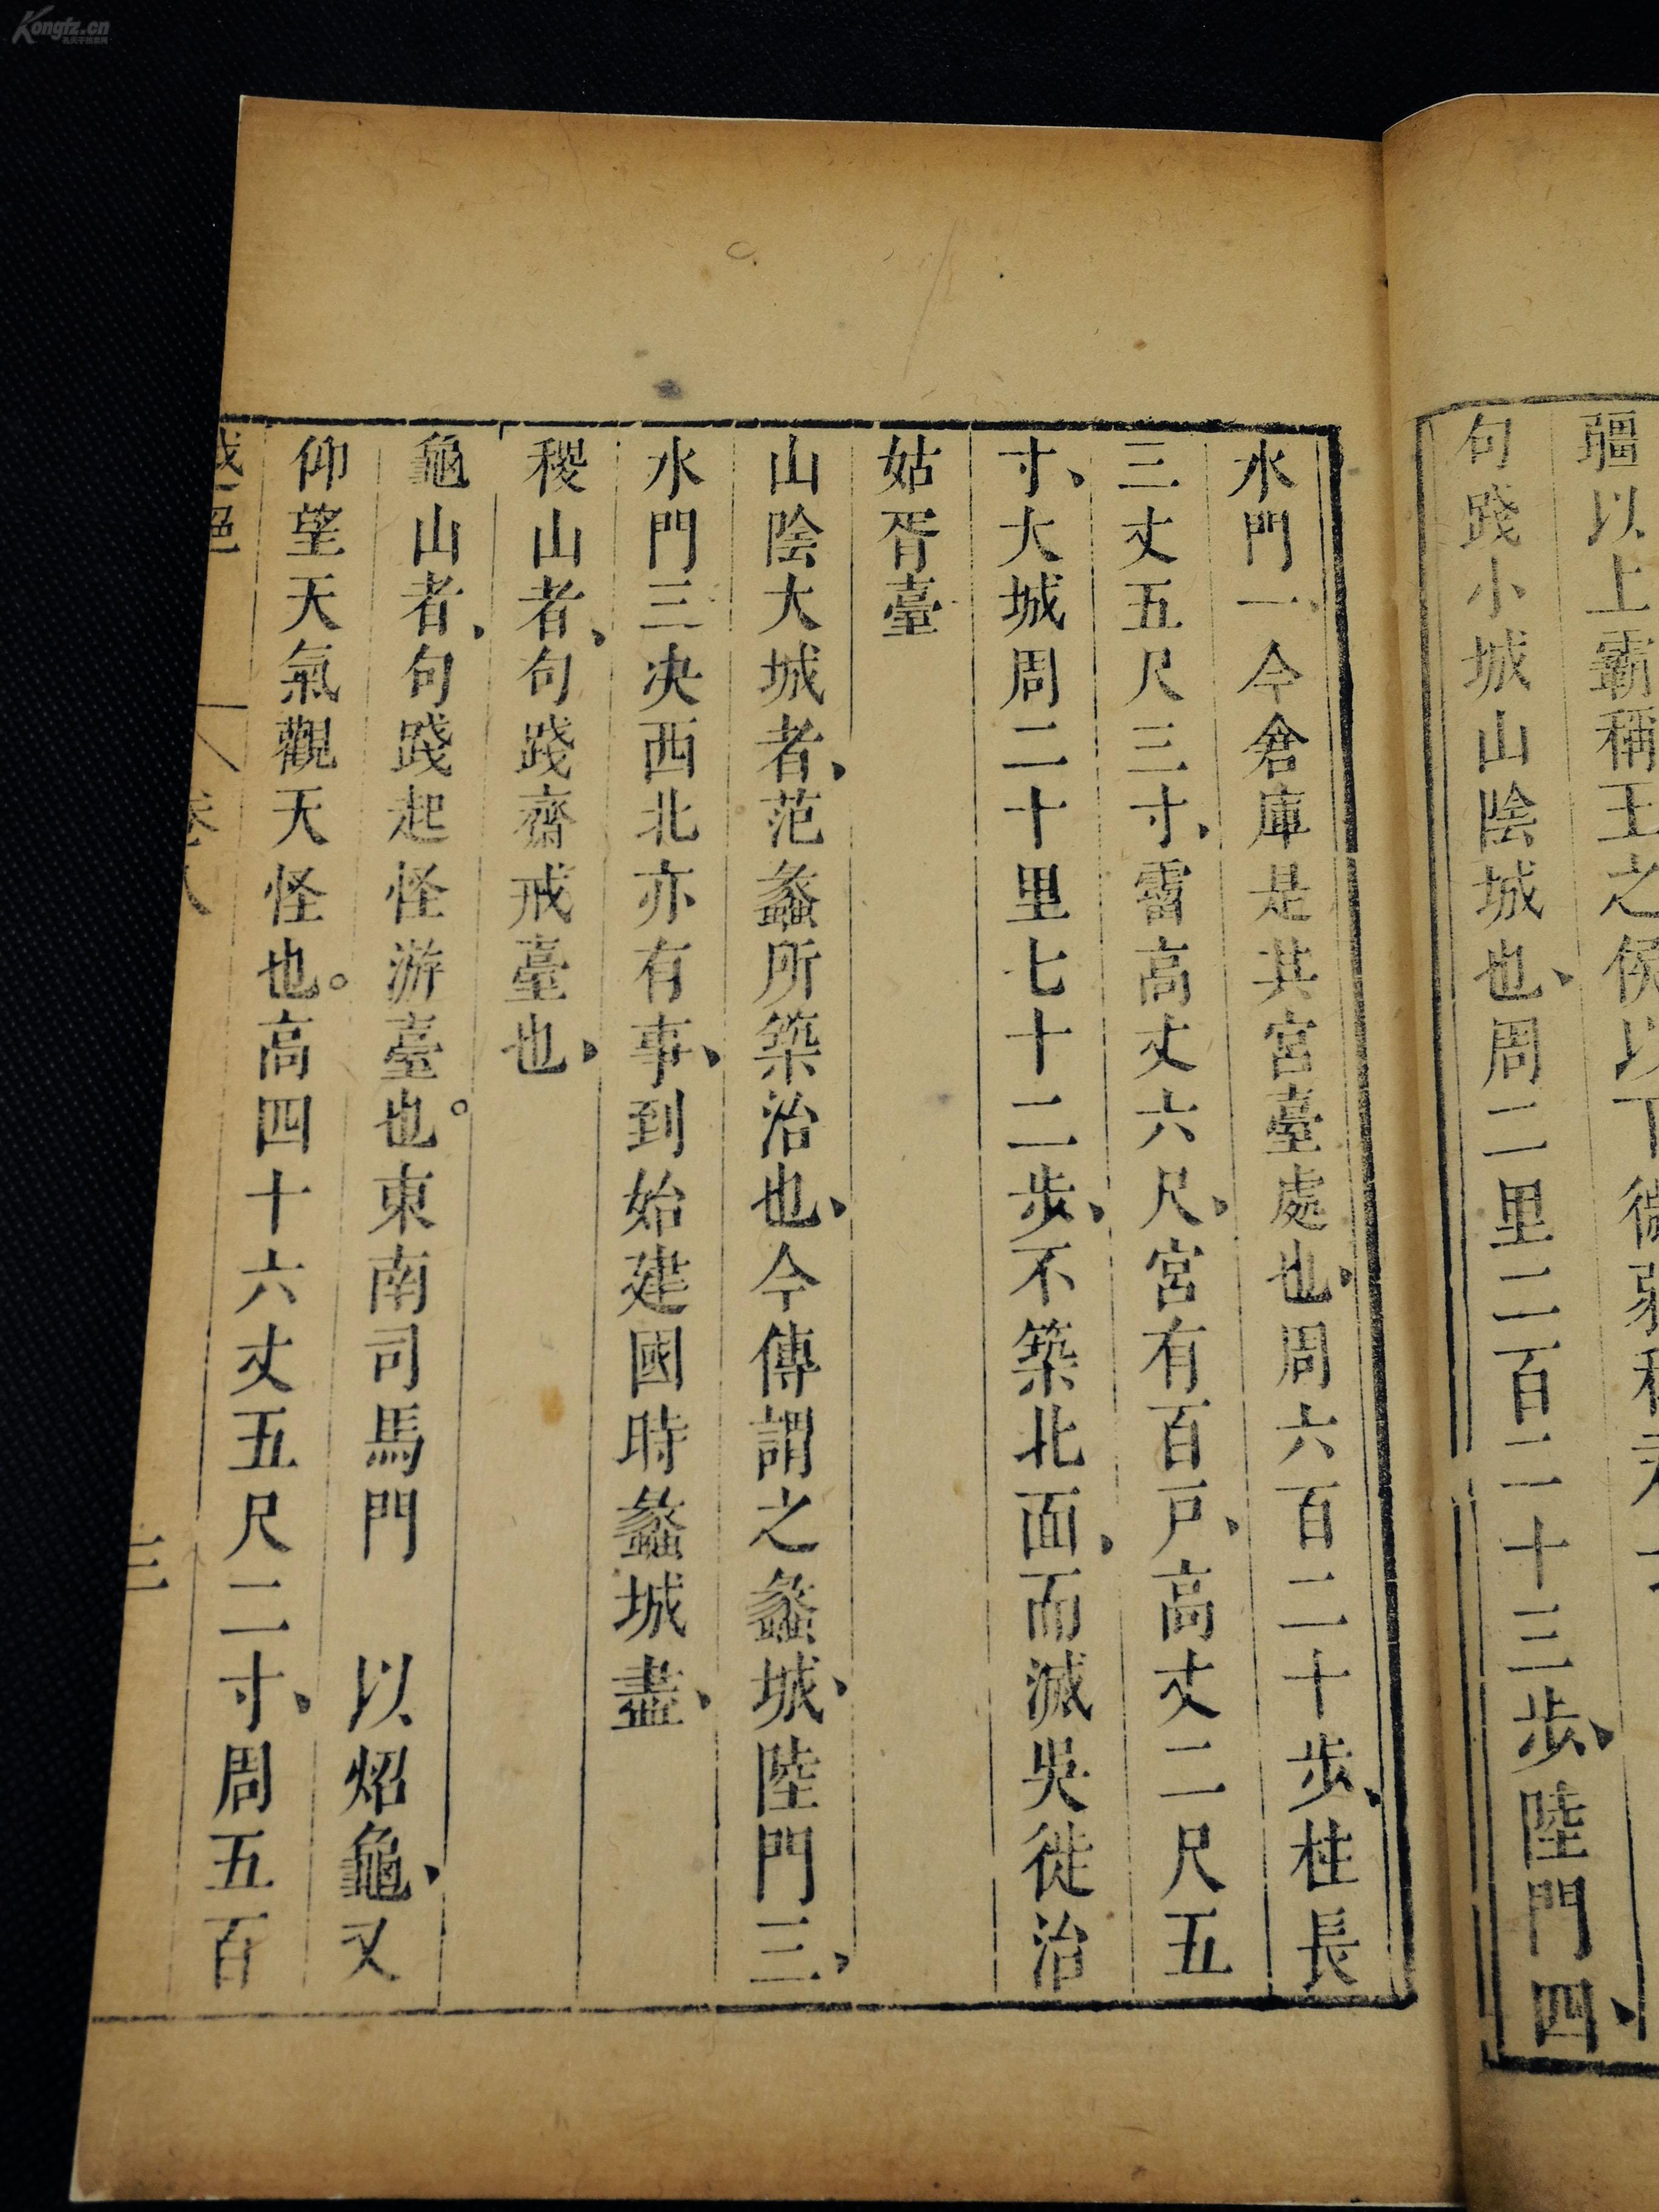 疆以上霸稱王之侯以下微弱稱君
句踐小城山陰城也、周二里二百二十三步、陸門四、
水門一、今倉庫是其宮臺處也、周六百二十步、柱長
三丈五尺三寸、霤高丈六尺、宮有百戸、高丈二尺五
寸、大城周二十里七十二步、不築北面、而滅吳徙治
姑胥臺
山陰大城者、范蠡所築治也、今傳謂之蠡城、陸門三、
水門三决西北亦有事、到始建國時蠡城盡、
稷山者、句踐齋戒臺也、
龜山者、句踐起怪游臺也。東南司馬門 以炤龜、又
仰望天氣觀天怪也。高四十六丈五尺二寸、周五百
越絕 卷八 三
Kongfz.cn